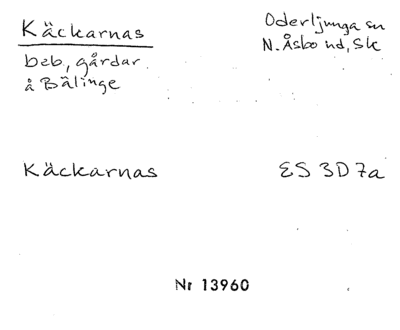 Käckarnas
Oderljunga sn
N. Åsbo hd, Sk
beb, gårdar
å Bälinge
Käckarnas
ES 3D7a
Nr 13960